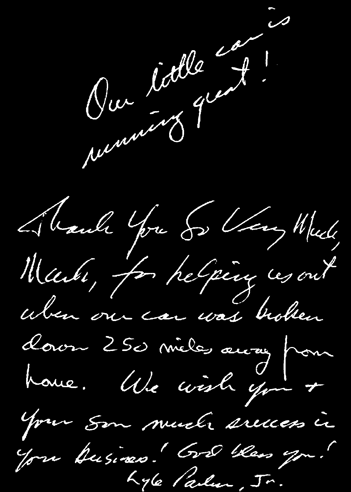 Our little car is
running great!
Thank You So Very Much,
Mark, for helping us out
when our car was broken
down 250 miles away from
home. We wish you +
your son much success in
your business! God bless you!
Lyle Parker, Jr.